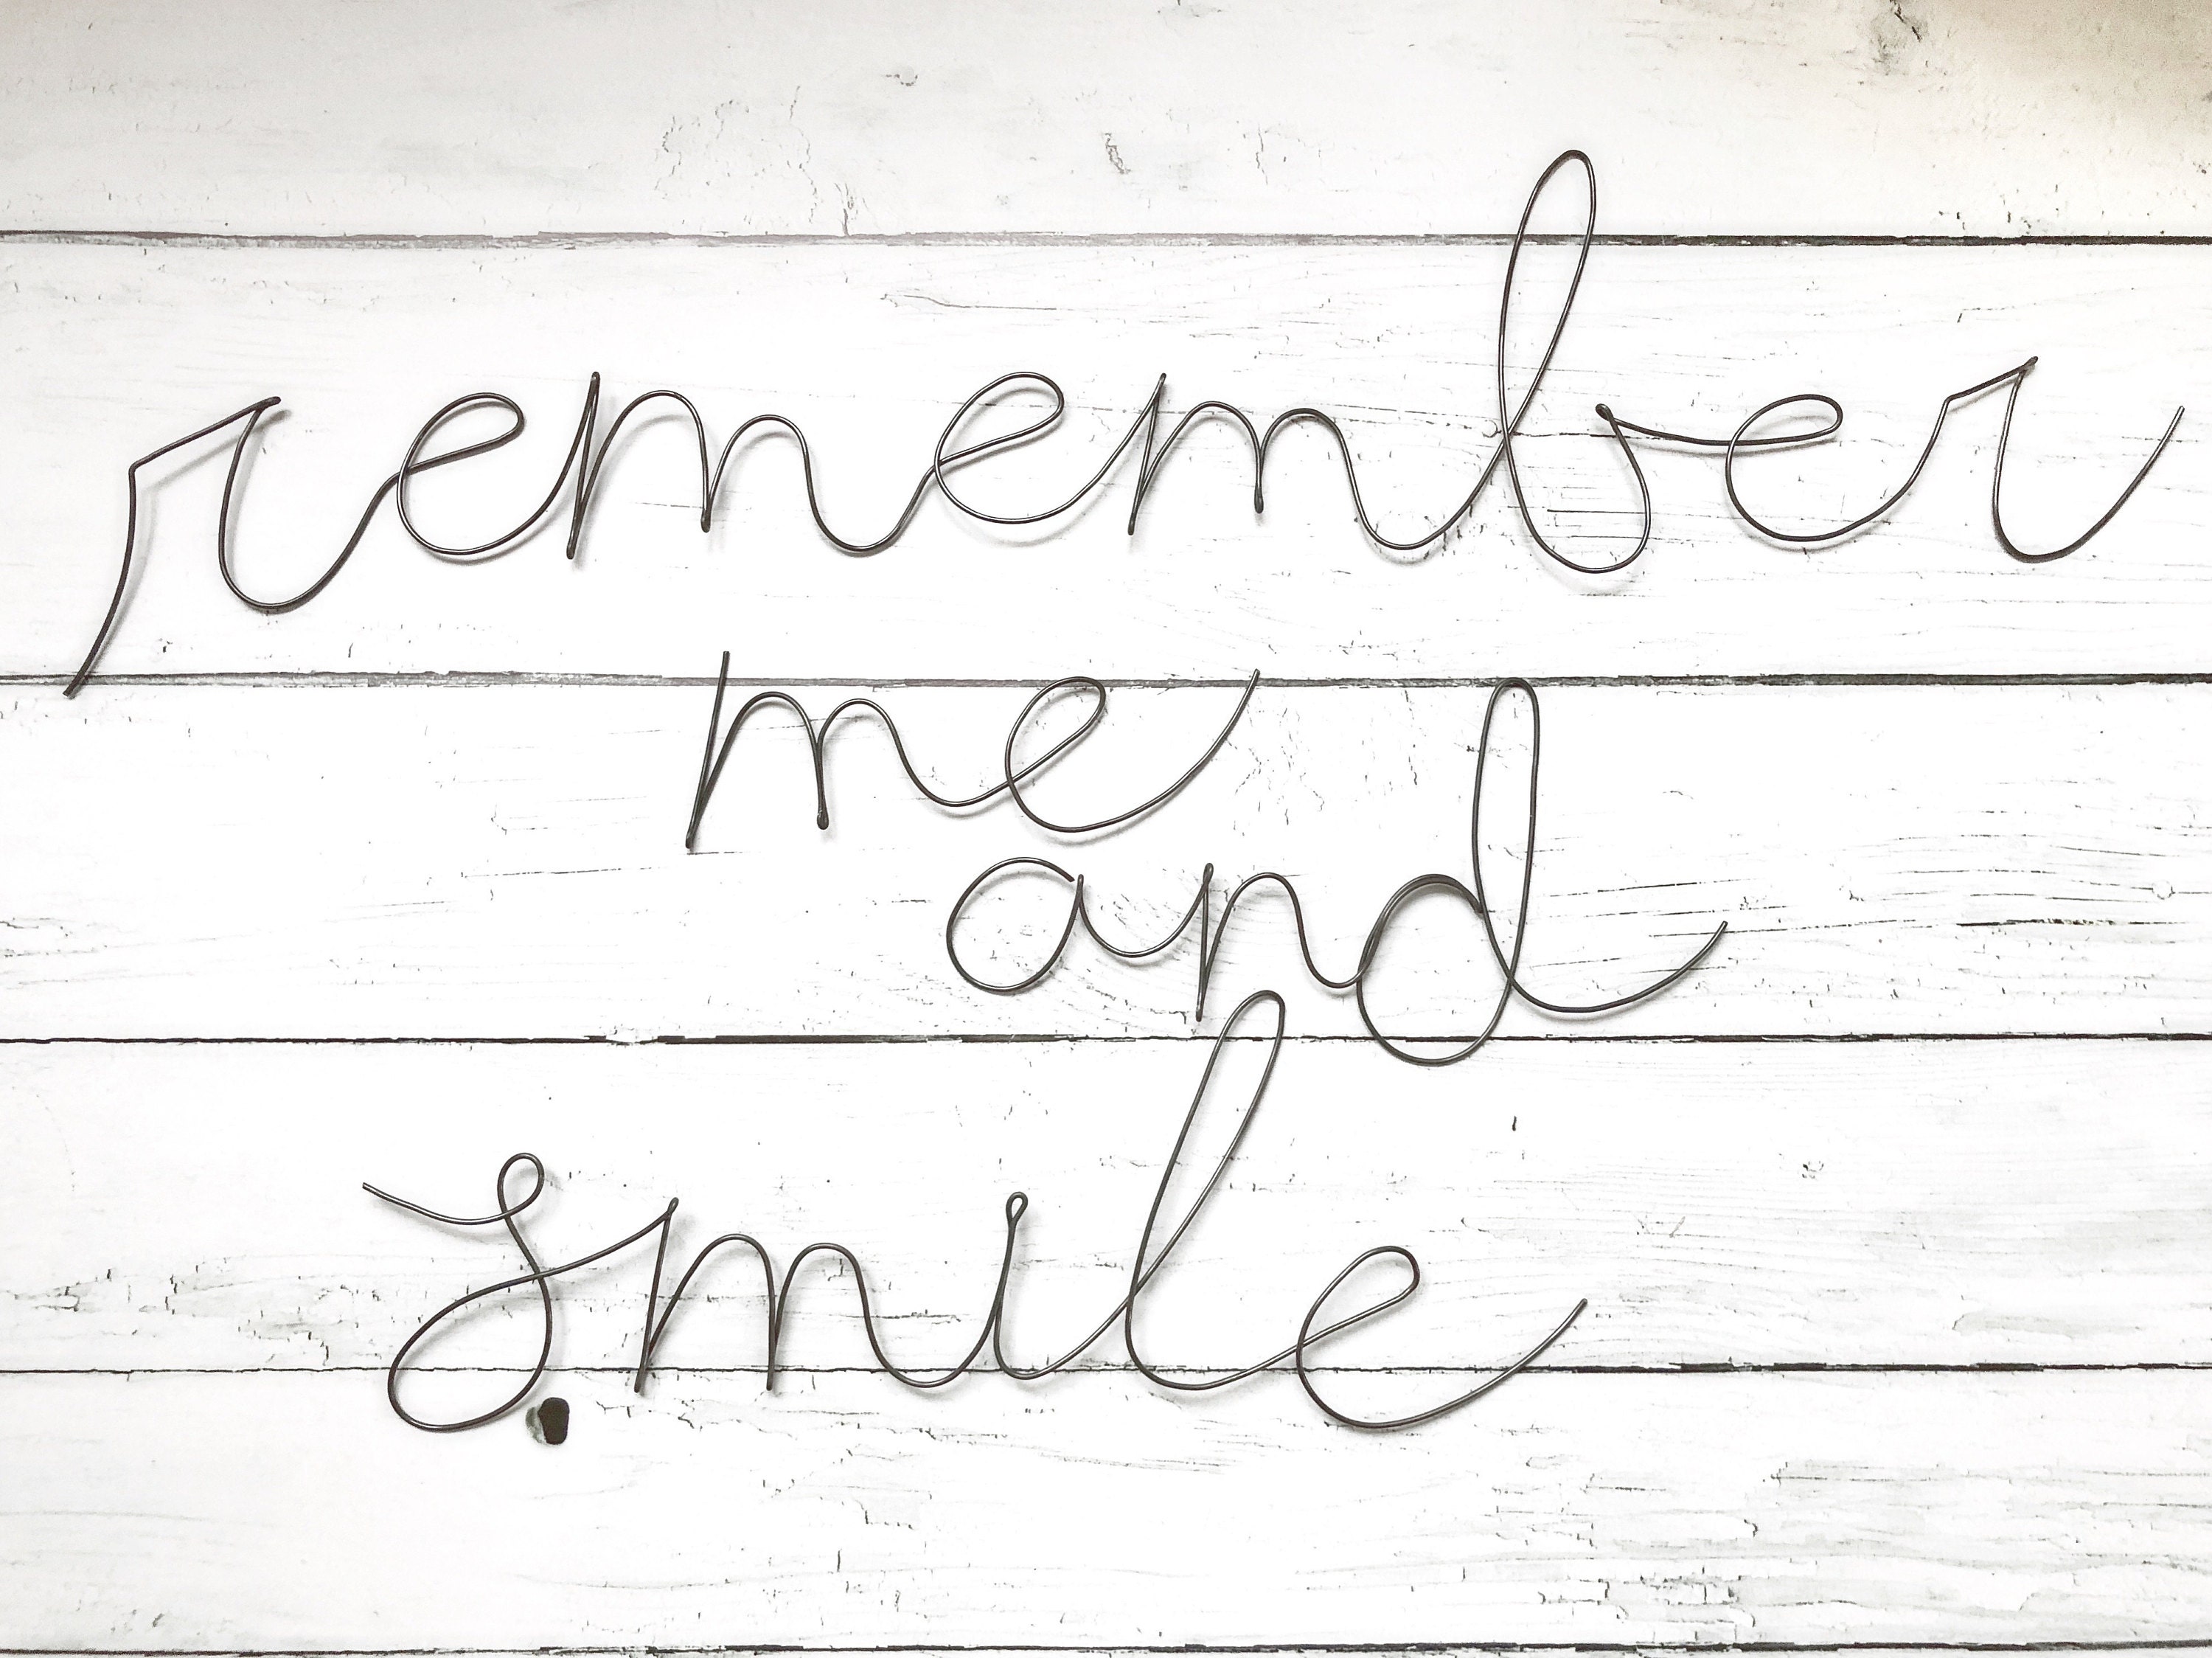 remember
me
and
smile